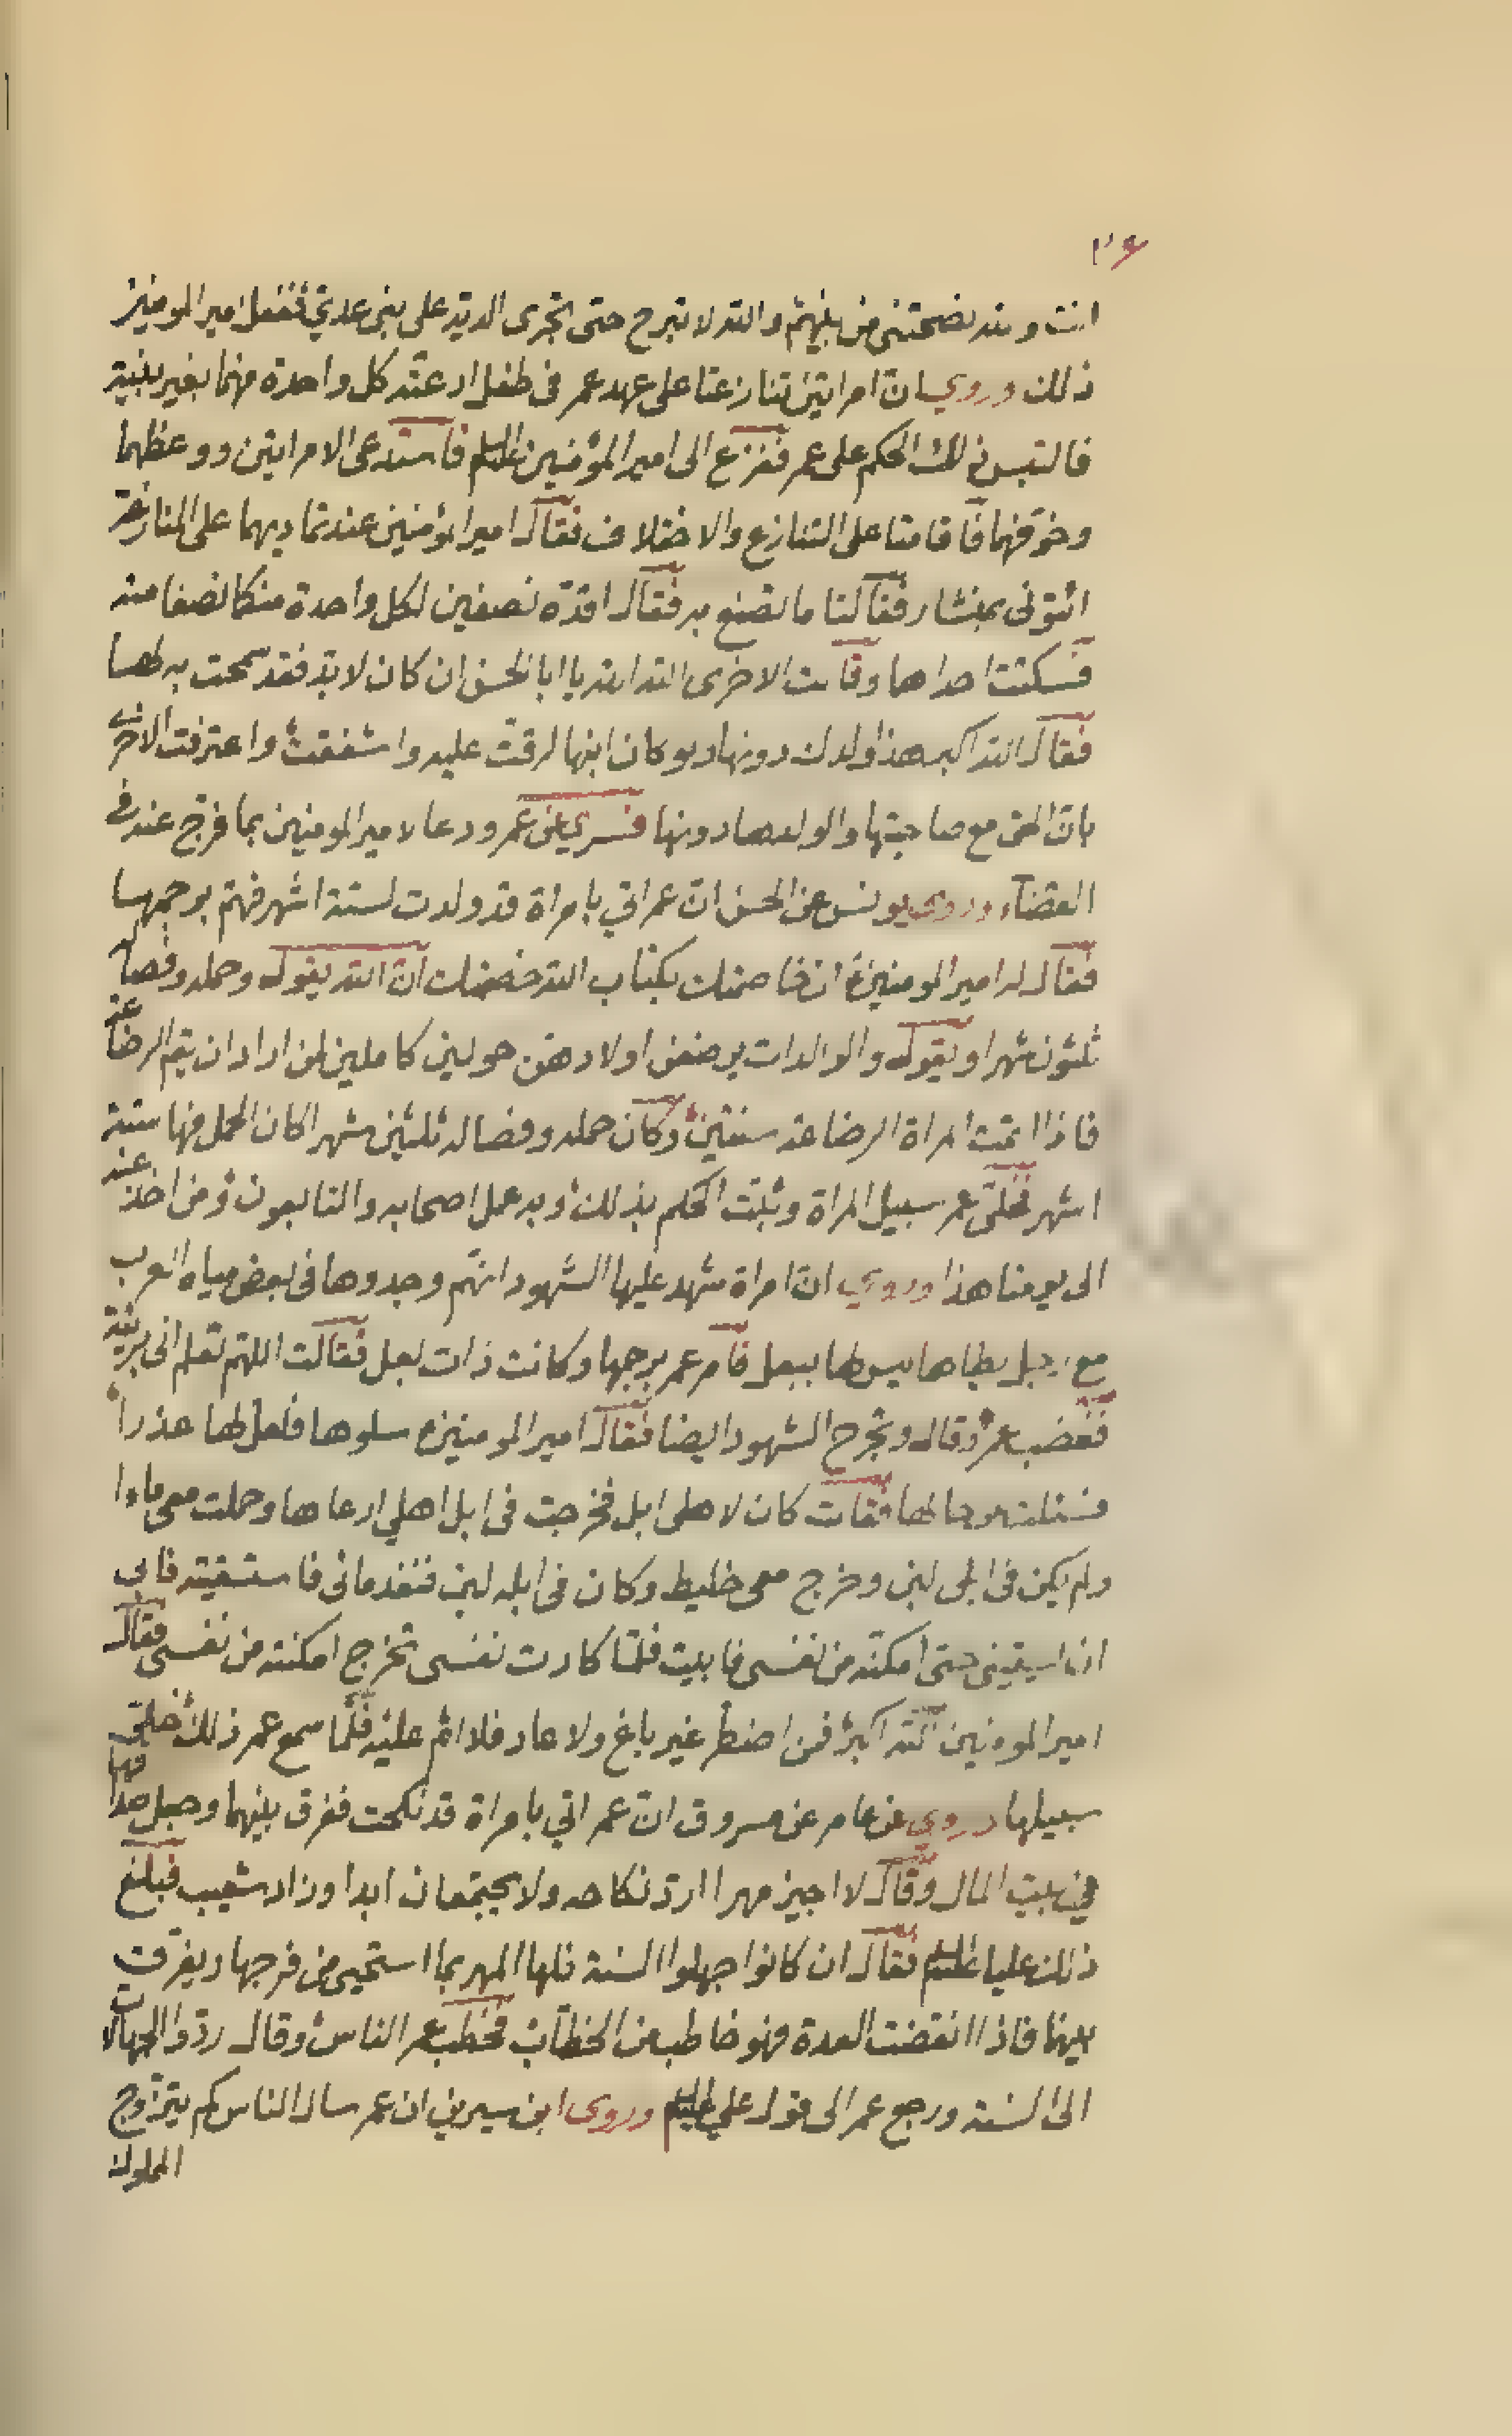 ٣٤
انت والله نصحتنى من بينهم والله لا تبرح حتى تجرى الدية على بنى عدي ففعل امير المومنين
ذلك وروي انّ امراتين تنازعتا على عهد عمر فى طفل ادعته كل واحدة منهما بغير بينة
فالتبس ذلك الحكم على عمر ففزع الى امير المؤمنين عليه السلم فاستدعى الامراتين ووعظهما
وخوّفهما فاقامتا على التنازع والاختلاف فقال امير المؤمنين عند تماديهما على المنازعة
ائتونى بمنشار فقالتا ما تصنع به فقال اقدّه نصفين لكل واحدة منكما نصفا منه
فسكتت احداهما وقالت الاخرى الله الله يا ابا الحسن ان كان لا بدّ فقد سمحت به لها
فقال الله اكبر هذا ولدك دونها ولو كان ابنها لرقّت عليه واشفقت واعترفت الاخرى
بانّ الحق مع صاحبتها والولد لها دونها فسري عن عمر ودعا لامير المومنين بما فرّج عنه فى
القضاء وروى يونس عن الحسن انّ عمر اتي بامراة قد ولدت لستة اشهر فهمّ برجمها
فقال له امير المومنين ع ان خاصمتك بكتاب الله خصمتك انّ الله يقول وحمله وفصاله
ثلثون شهرا ويقول والوالدات يرضعن اولادهن حولين كاملين لمن اراد ان يتم الرضاعة
فاذا اتمت امراة الرضاعة سنتين وكان حمله وفصاله ثلثين شهرا كان الحمل منها ستة
اشهر فخلّى عمر سبيل المراة وثبت الحكم بذلك وبه عمل اصحابه والتابعون ومن اخذ عنه
الى يومنا هذا وروي انّ امراة شهد عليها الشهود انّهم وجدوها فى بعض مياه العرب
مع رجل يطاها ليس لها ببعل فامر عمر برجمها وكانت ذات بعل فقالت اللهم تعلم انى بريئة
فغضب عمر وقال وتجرح الشهود ايضا فقال امير المومنين ع سلوها فلعل لها عذراً
فسئلت عن حالها فقالت كان لاهلى ابل فخرجت فى ابل اهلي ارعاها وحملت معى ماءا
ولم يكن فى ابلى لبن وخرج معى خليط وكان فى ابله لبن فنفد مائى فاستسقيته فابى
ان يسقينى حتى امكنه من نفسى فابيت فلمّا كادت نفسى تخرج امكنته من نفسى فقال
امير المومنين الله اكبر فمن اضطر غير باغ ولا عاد فلا اثم عليه فلمّا سمع عمر ذلك خلّى
سبيلها وروي عن عامر عن مسروق انّ عمر اتي بامراة قد نكحت ففرق بينهما وجعل صداقها
في بيت المال وقال لا اجيز مهرا اردّ نكاحه ولا يجتمعان ابدا وزاد شعيب فبلغ
ذلك عليا عليه السلم فقال ان كانوا جهلوا السنة فلها المهر بما استحلّ من فرجها ويفرّق
بينهما فاذا انقضت العدة فهو خاطب من الخطاب فخطب عمر الناس وقال ردّوا الجهالات
الى السنة ورجع عمر الى قول علي عليه السلم وروى ابن سيرين ان عمر سال الناس كم يتزوّج
المملوك